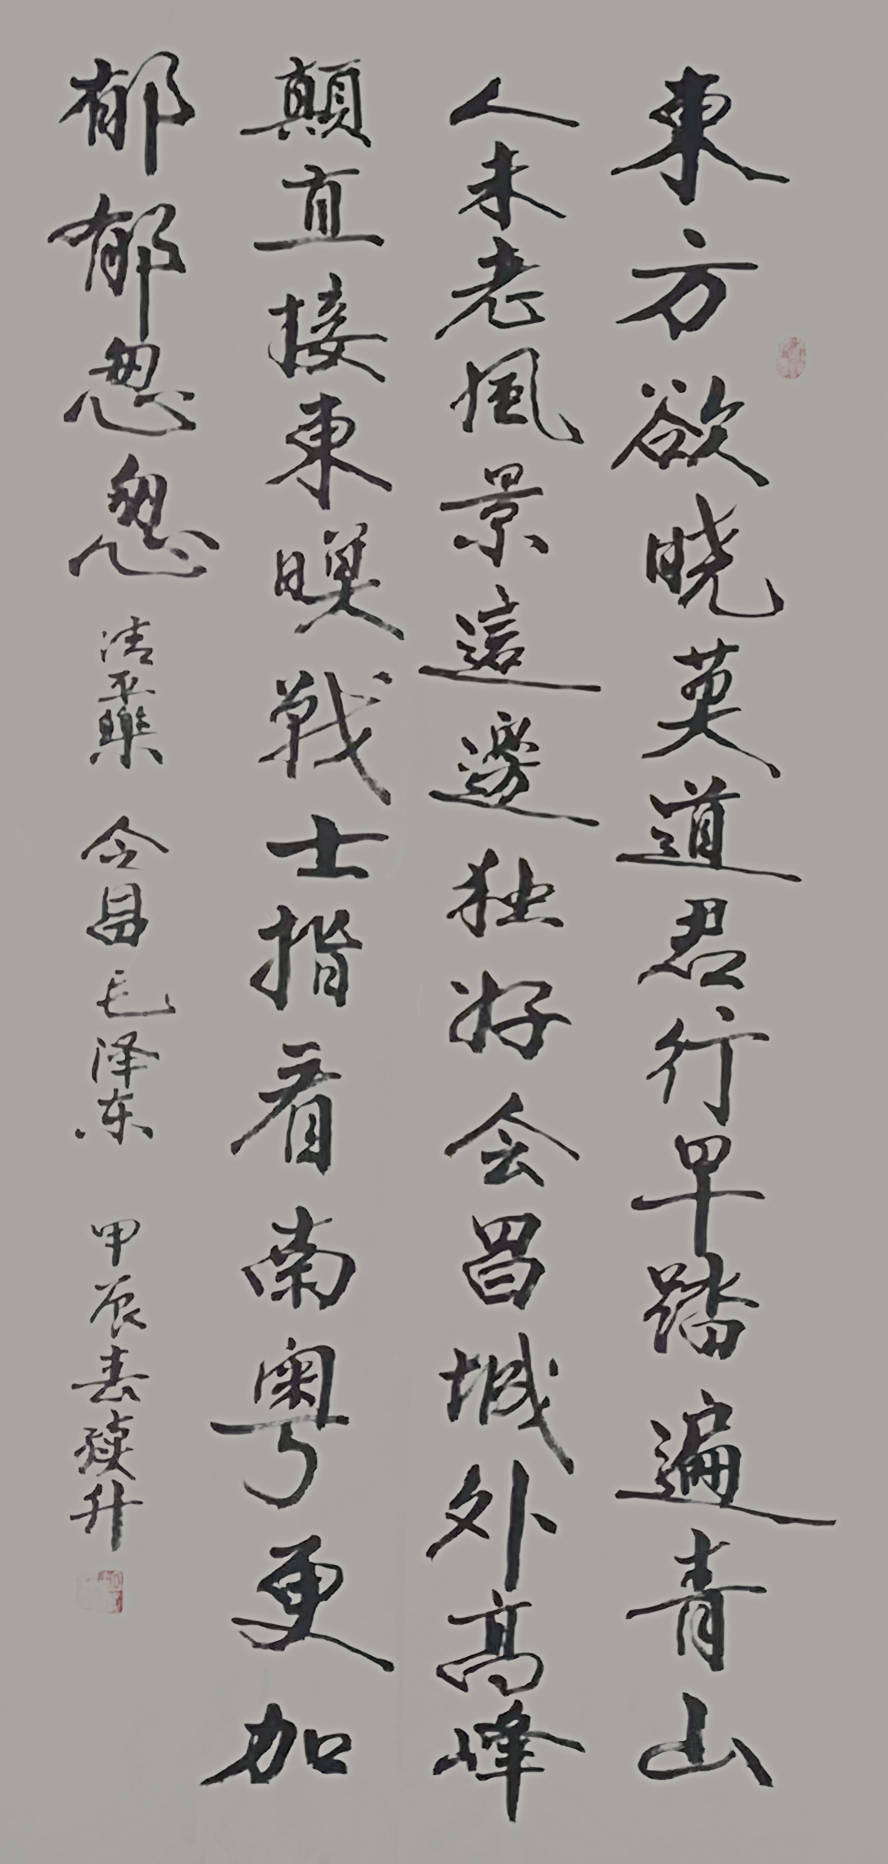 東方欲晓莫道君行早踏遍青山
人未老風景這邊独好会昌城外高峰
顛直接東暝戰士指看南粤更加
郁郁怱怱 清平樂 会昌毛泽东 甲辰春 升